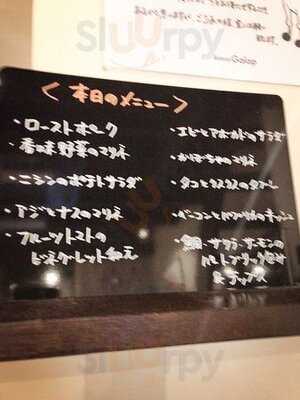 Sluurpy
Galop
〈本日のメニュー〉
・ローストポーク
・香味野菜のマリネ
・ニシンのポテトサラダ
・アジとナスのマリネ
・フルーツトマトの
ビネグレット和え
・エビとアボカドのサラダ
・かぼちゃのマリネ
・タコとクスクスのタブレ
・ベーコンと のキッシュ
・鯛・サワラ・サーモンの
&チップス
Sluurpy